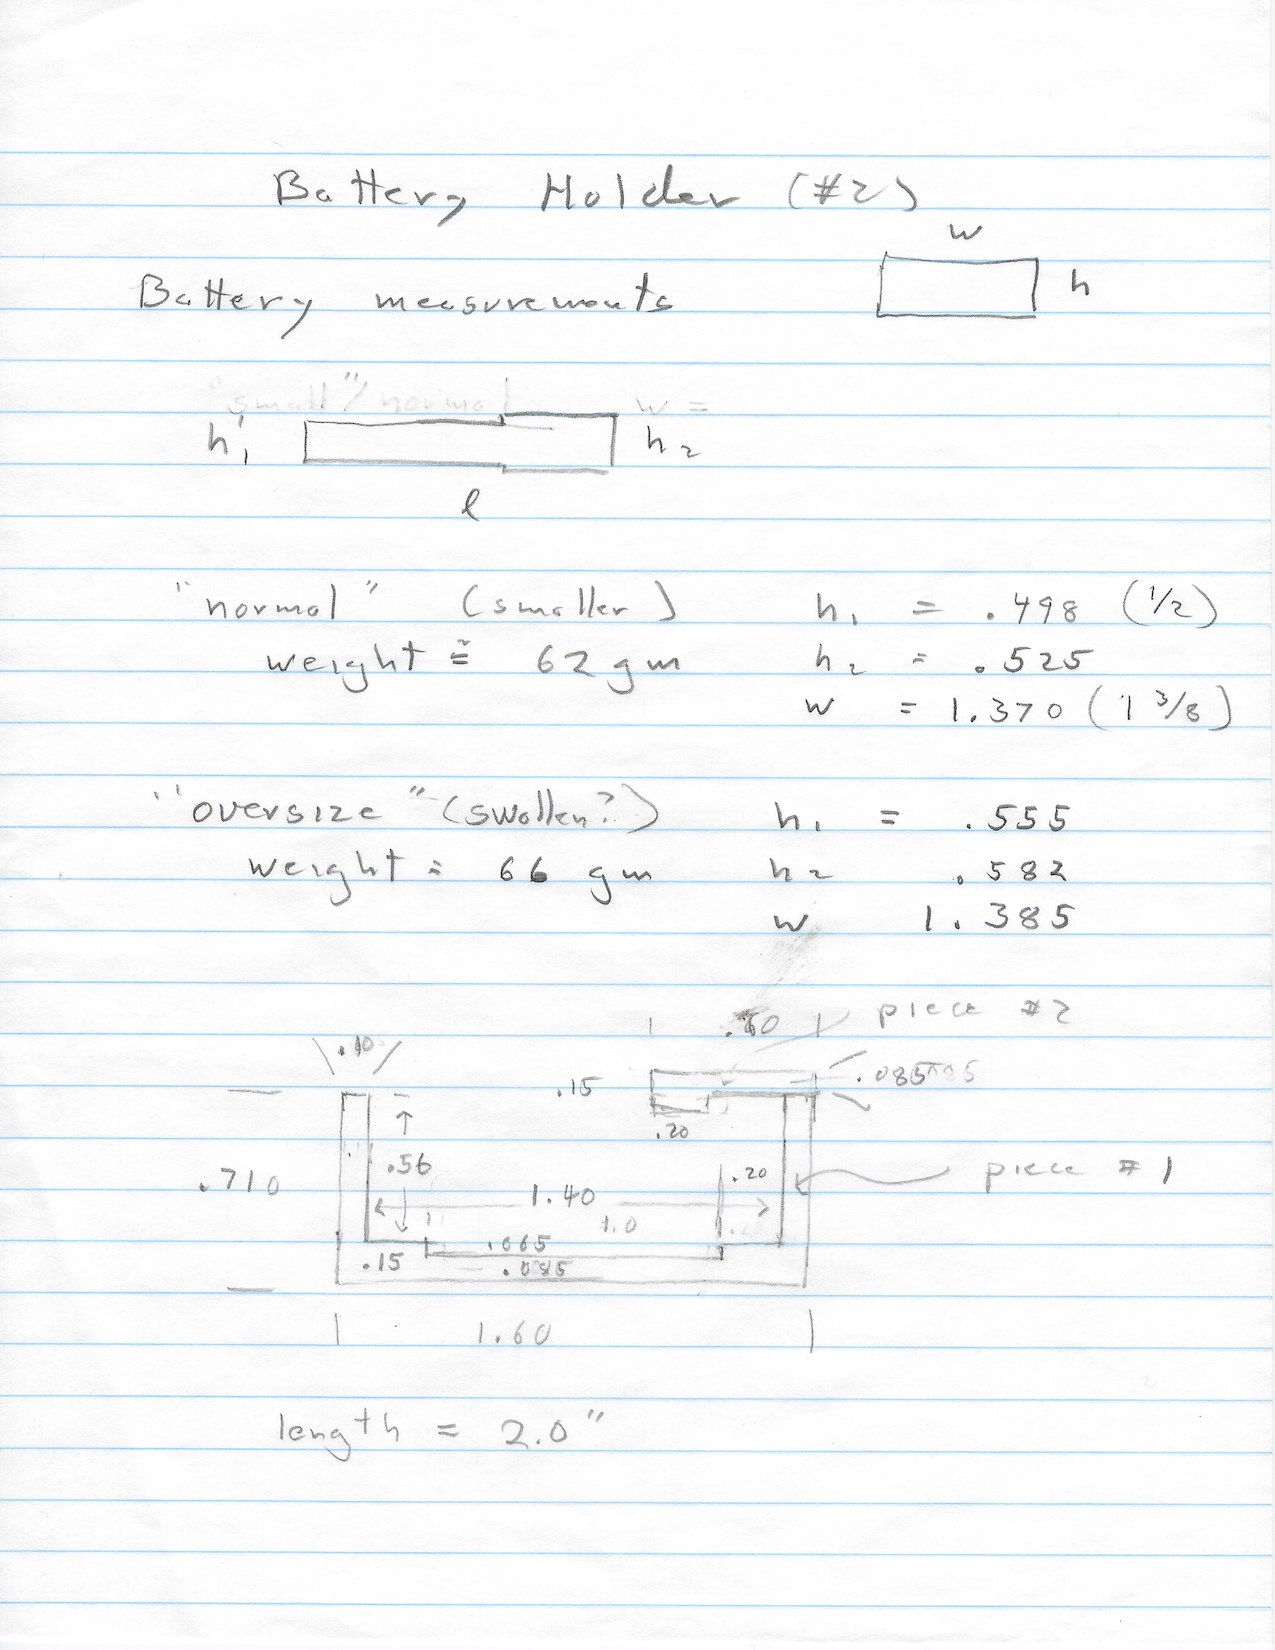 Battery Holder (#2)
w
h
Battery measurements
"small"/normal
w =
h1
h2
l
"normal" (smaller)
h1 = .498 (1/2)
weight ≅ 62 gm
h2 = .525
w = 1.370 (1 3/8)
"oversize" (swollen?)
h1 = .555
weight = 66 gm
h2 .582
w 1.385
piece #2
.10
.15
.085
.20
.56
.20
piece #1
.710
1.40
1.0
.065
.15
.085
1.60
length = 2.0"